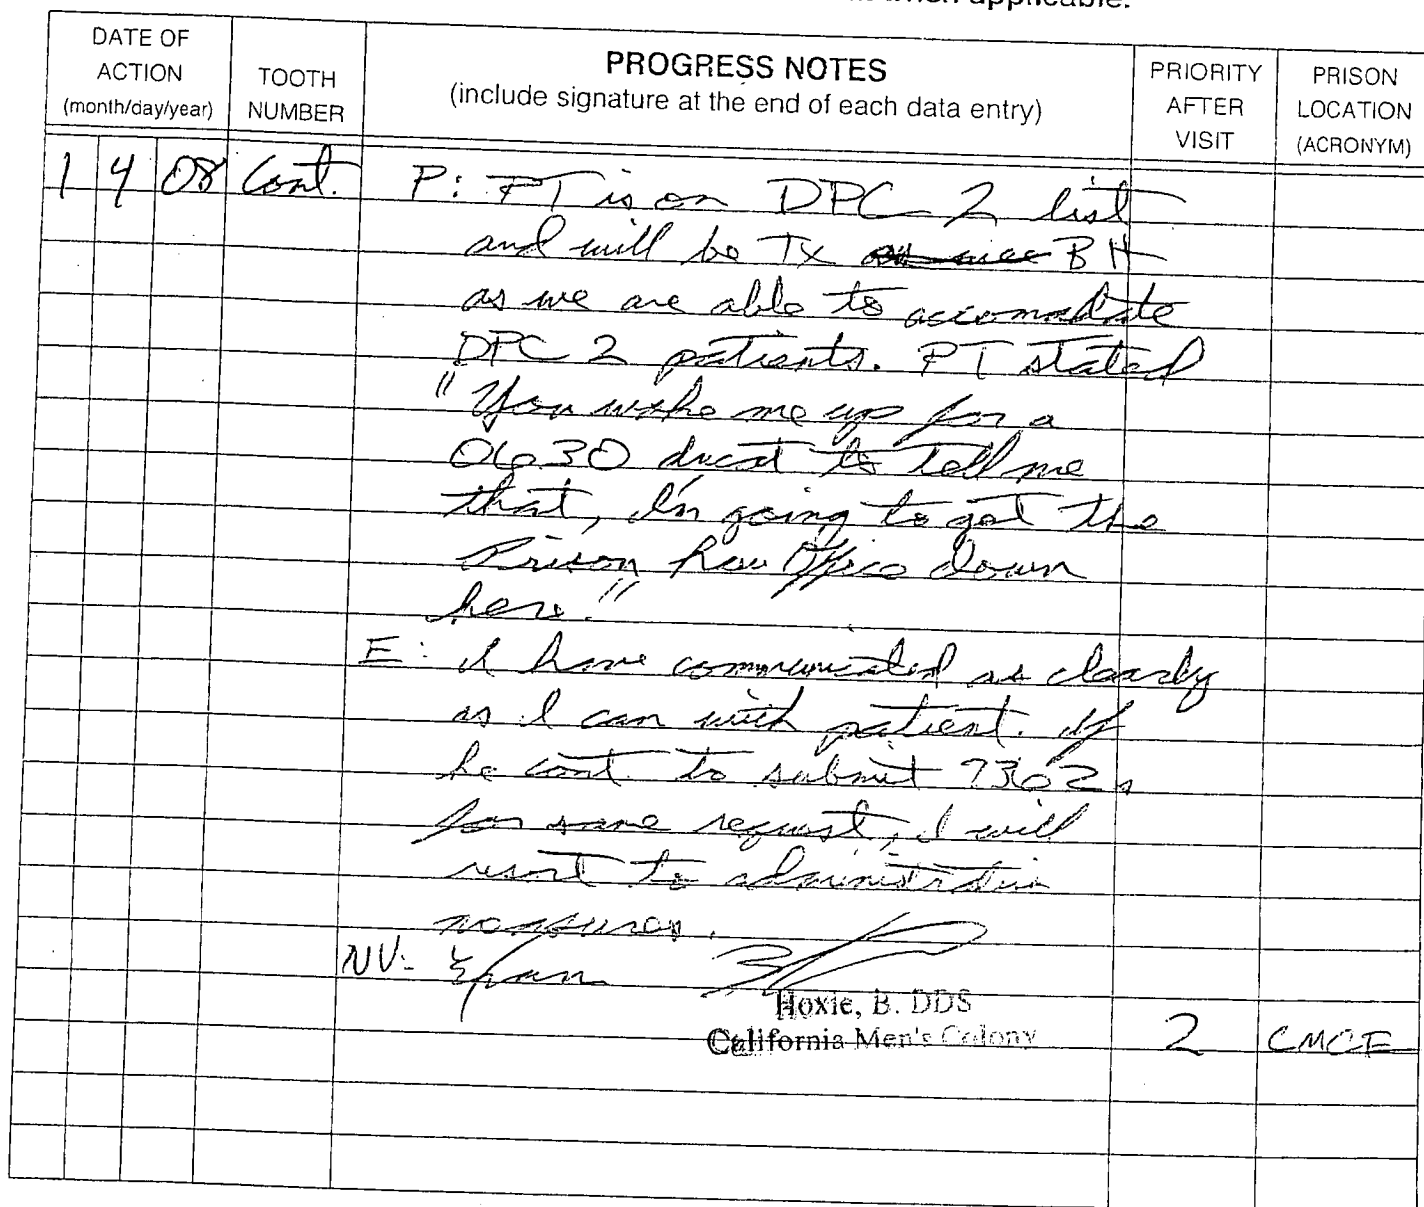 when applicable.
DATE OF ACTION (month/day/year)
TOOTH NUMBER
PROGRESS NOTES
(include signature at the end of each data entry)
PRIORITY AFTER VISIT
PRISON LOCATION (ACRONYM)
1 4 08 Cont. P: PT is on DPC 2 list
and will be Tx BH
as we are able to accomodate
DPC 2 patients. PT stated
"You woke me up for a
0630 ducat to tell me
that, I'm going to get the
Prison Law Office down
here."
E: I have communicated as clearly
as I can with patient. If
he cont. to submit 7362s
for same request, I will
resort to administrative
measures.
NV: Exam
Hoxie, B. DDS
California Men's Colony 2 CMCE